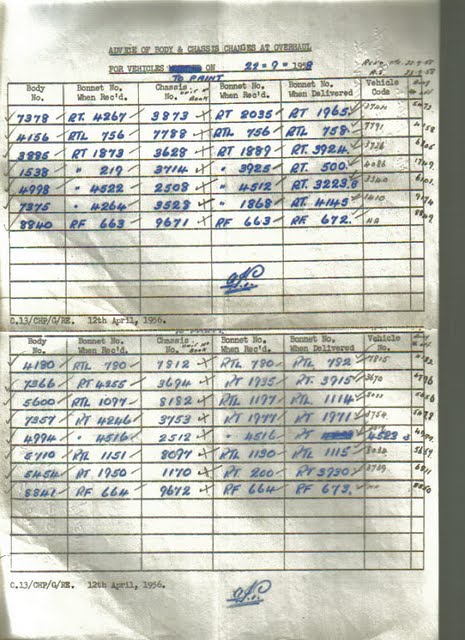 ADVICE OF BODY & CHASSIS CHANGES AT OVERHAUL
FOR VEHICLES ON 22 = 9 = 1958
TO PAINT
Body No. Bonnet No. When Rec'd. Chassis No. Unit No Book Bonnet No. When Delivered Vehicle Code
7378 RT. 4267 3873 RT 2035 RT 1965.
4156 RTL 756 7788 RTL 756 RTL 758.
3885 RT 1873 3628 RT 1889 RT. 3924.
1538 " 219 3714 " 3925 RT. 500.
4998 " 4522 2508 " 4512 RT. 3223.
7375 " 4264 3528 " 1868 RT. 4145
8840 RF 663 9671 RF 663 RF 672. NA
C.13/CHP/G/RE. 12th April, 1956.
Body No. Bonnet No. When Rec'd. Chassis No. Unit No Book Bonnet No. When Rec'd. Bonnet No. When Delivered Vehicle No.
4180 RTL 780 7812 RTL 780 RTL 782 7815
7366 RT 4355 3694 RT 1935 RT. 3915 3670
5600 RTL 1097 8182 RTL 1197 RTL 1114
7357 RT 4246 3753 RT 1977 RT 1971
4994 " 4516 2512 " 4516 RT 4523
5710 RTL 1151 8097 RTL 1130 RTL 1115
5454 RT 1950 1170 RT. 200 RT 3930
8841 RF 664 9672 RF 664 RF 673.
C.13/CHP/G/RE. 12th April, 1956.